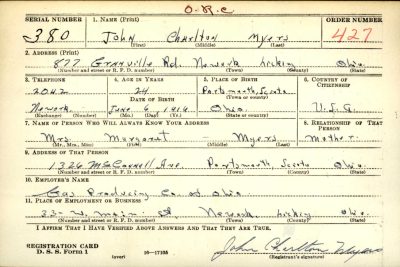 O.R.C
SERIAL NUMBER 1. NAME (Print) ORDER NUMBER
380 John Charlton Myers 427
(First) (Middle) (Last)
2. ADDRESS (Print)
877 Granville Rd. Newark Licking Ohio
(Number and street or R. F. D. number) (Town) (County) (State)
3. TELEPHONE 4. AGE IN YEARS 5. PLACE OF BIRTH 6. COUNTRY OF CITIZENSHIP
2042 24 Portsmouth, Scioto
DATE OF BIRTH
Newark June 6 1916 Ohio U.S.A.
(Exchange) (Number) (Mo.) (Day) (Yr.) (State or country)
7. NAME OF PERSON WHO WILL ALWAYS KNOW YOUR ADDRESS 8. RELATIONSHIP OF THAT PERSON
Mrs. Margaret Myers Mother
(Mr., Mrs., Miss) (First) (Middle) (Last)
9. ADDRESS OF THAT PERSON
1326 McConnell Ave. Portsmouth, Scioto Ohio
(Number and street or R. F. D. number) (Town) (County) (State)
10. EMPLOYER'S NAME
Gas Producing Co. of Ohio
11. PLACE OF EMPLOYMENT OR BUSINESS
W. Main St Newark Licking Ohio
(Number and street or R. F. D. number) (Town) (County) (State)
I AFFIRM THAT I HAVE VERIFIED ABOVE ANSWERS AND THAT THEY ARE TRUE.
REGISTRATION CARD
D. S. S. Form 1 (over) 16—17105 John Charlton Myers
(Registrant's signature)